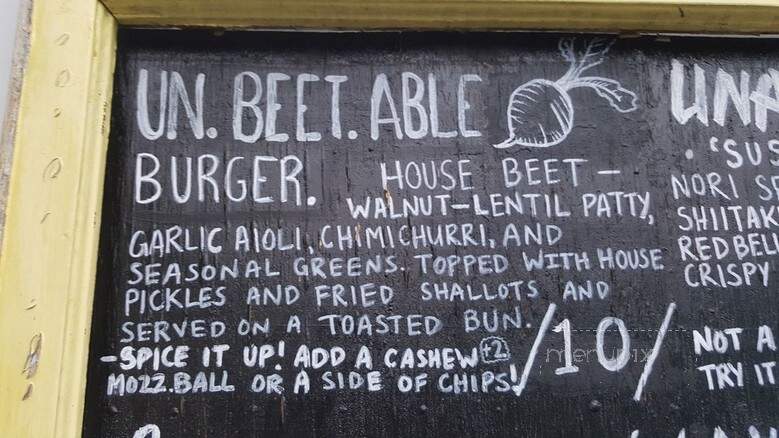 UN. BEET. ABLE
BURGER. HOUSE BEET-
WALNUT-LENTIL PATTY,
GARLIC AIOLI, CHIMICHURRI, AND
SEASONAL GREENS. TOPPED WITH HOUSE
PICKLES AND FRIED SHALLOTS AND
SERVED ON A TOASTED BUN.
-SPICE IT UP! ADD A CASHEW +2
MOZZ.BALL OR A SIDE OF CHIPS!
/10/
menupix
• 'SUS
NORI
SHIITAK
RED BEL
CRISPY
NOT A
TRY IT